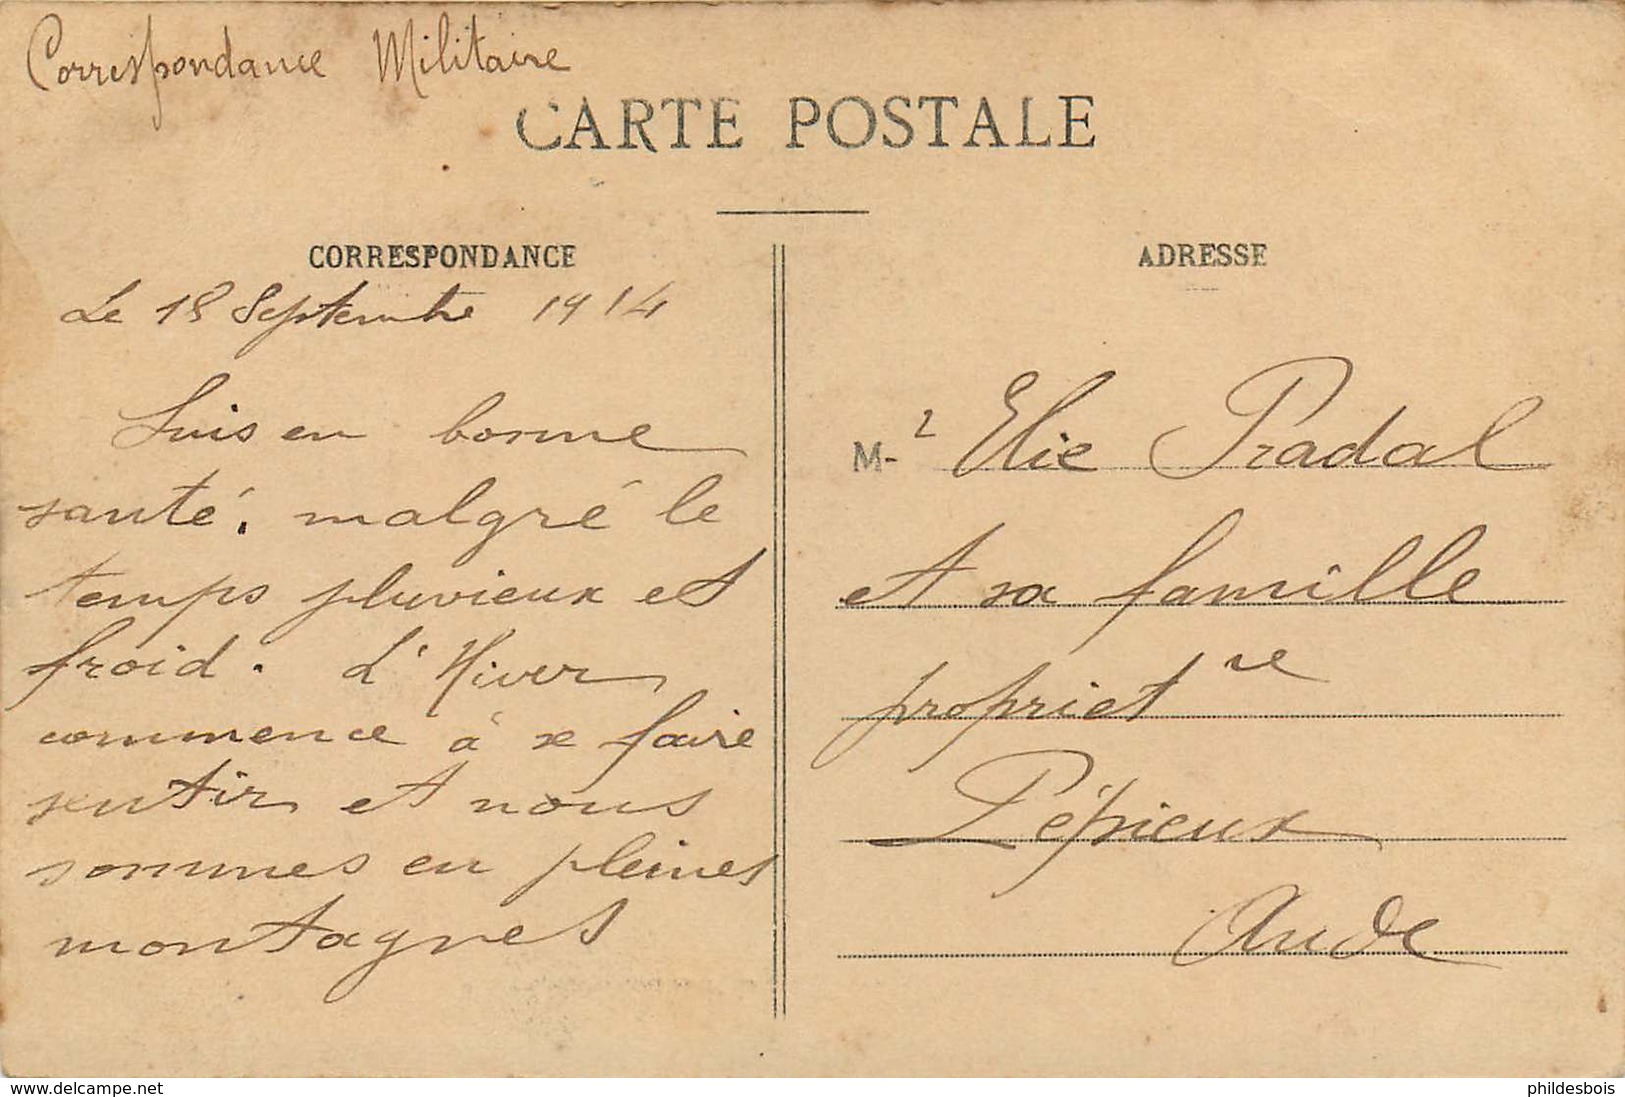 Correspondance Militaire
CARTE POSTALE
CORRESPONDANCE
Le 18 Septembre 1914
Suis en bonne
santé, malgré le
temps pluvieux et
froid. L'Hiver
commence à se faire
sentir et nous
sommes en pleines
montagnes
ADRESSE
M-r Elie Pradal
et sa famille
propriet re
Pépieux
Aude
www.delcampe.net
phildesbois